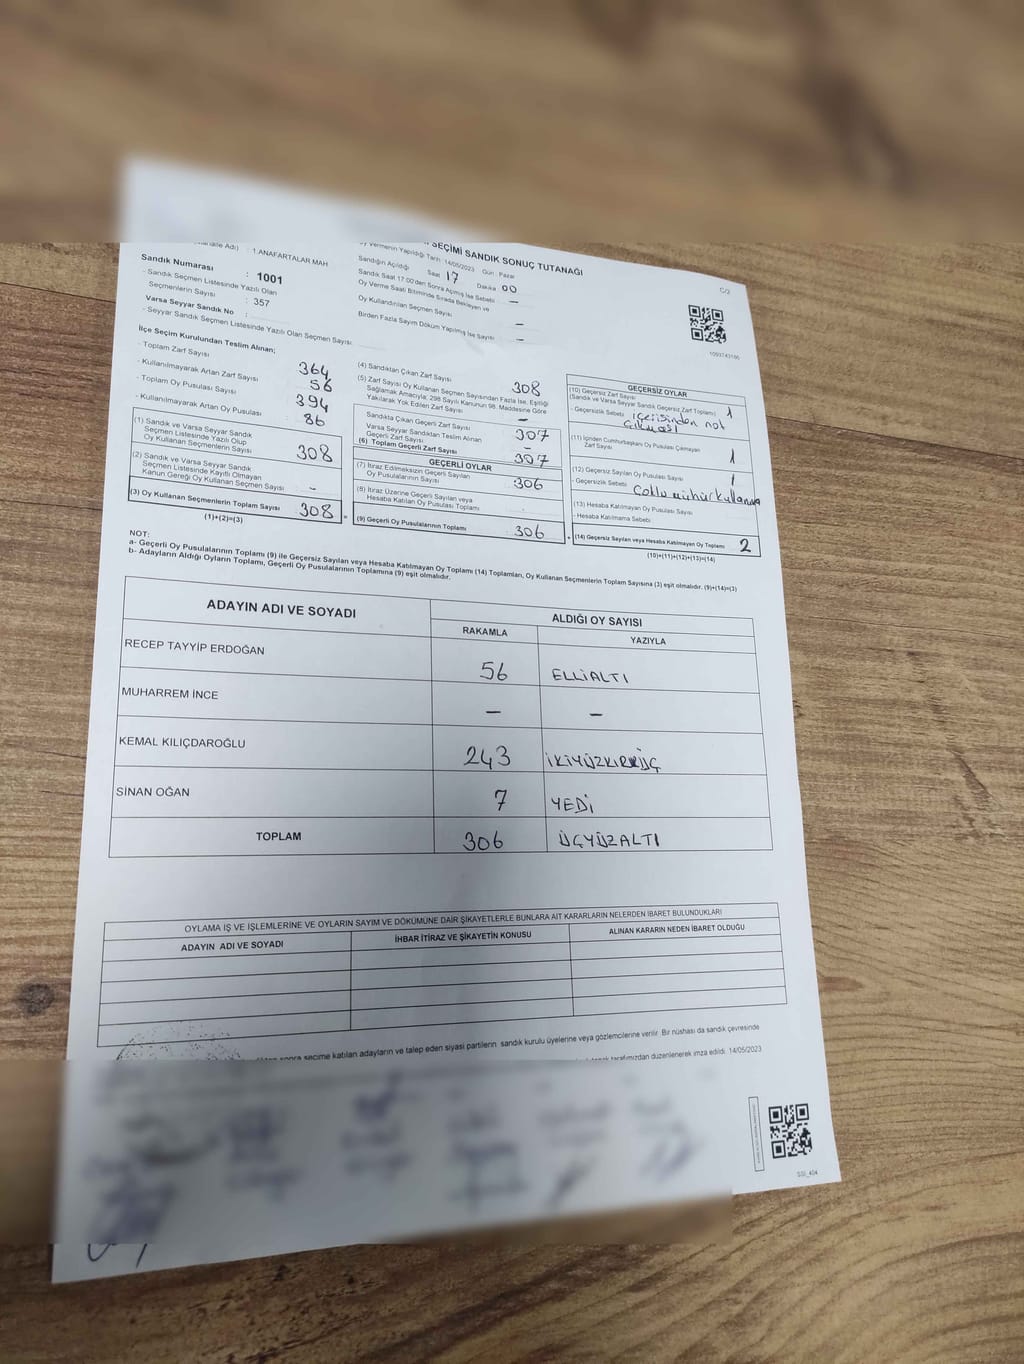 SEÇİMİ SANDIK SONUÇ TUTANAĞI
C/2
: 1.ANAFARTALAR MAH
Sandık Numarası : 1001
- Sandık Seçmen Listesinde Yazılı Olan
Seçmenlerin Sayısı : 357
Varsa Seyyar Sandık No :
- Seyyar Sandık Seçmen Listesinde Yazılı Olan Seçmen Sayısı
Oy Vermenin Yapıldığı Tarih : 14/05/2023 Gün : Pazar
Sandığın Açıldığı Saat 17 Dakika 00
Sandık Saat 17.00'den Sonra Açılmış İse Sebebi
Oy Verme Saati Bitiminde Sırada Bekleyen ve
Oy Kullandırılan Seçmen Sayısı –
Birden Fazla Sayım Döküm Yapılmış İse Sayısı –
1093743186
İlçe Seçim Kurulundan Teslim Alınan;
- Toplam Zarf Sayısı 364
- Kullanılmayarak Artan Zarf Sayısı 56
- Toplam Oy Pusulası Sayısı 394
- Kullanılmayarak Artan Oy Pusulası 86
(1) Sandık ve Varsa Seyyar Sandık
Seçmen Listesinde Yazılı Olup
Oy Kullanan Seçmenlerin Sayısı 308
(2) Sandık ve Varsa Seyyar Sandık
Seçmen Listesinde Kayıtlı Olmayan
Kanun Gereği Oy Kullanan Seçmen Sayısı –
(3) Oy Kullanan Seçmenlerin Toplam Sayısı 308
(1)+(2)=(3)
(4) Sandıktan Çıkan Zarf Sayısı 308
(5) Zarf Sayısı Oy Kullanan Seçmen Sayısından Fazla İse, Eşitliği
Sağlamak Amacıyla, 298 Sayılı Kanunun 98. Maddesine Göre
Yakılarak Yok Edilen Zarf Sayısı –
Sandıkta Çıkan Geçerli Zarf Sayısı 307
Varsa Seyyar Sandıktan Teslim Alınan
Geçerli Zarf Sayısı –
(6) Toplam Geçerli Zarf Sayısı 307
GEÇERLİ OYLAR
(7) İtiraz Edilmeksizin Geçerli Sayılan
Oy Pusulalarının Sayısı 306
(8) İtiraz Üzerine Geçerli Sayılan veya
Hesaba Katılan Oy Pusulası Toplamı
(9) Geçerli Oy Pusulalarının Toplamı 306
GEÇERSİZ OYLAR
(10) Geçersiz Zarf Sayısı
(Sandık ve Varsa Seyyar Sandık Geçersiz Zarf Toplamı) 1
- Geçersizlik Sebebi : içerisinden not
çıkması
(11) İçinden Cumhurbaşkanı Oy Pusulası Çıkmayan
Zarf Sayısı 1
(12) Geçersiz Sayılan Oy Pusulası Sayısı 1
- Geçersizlik Sebebi :
(13) Hesaba Katılmayan Oy Pusulası Sayısı
- Hesaba Katılmama Sebebi
(14) Geçersiz Sayılan veya Hesaba Katılmayan Oy Toplamı 2
(10)+(11)+(12)+(13)=(14)
NOT:
a- Geçerli Oy Pusulalarının Toplamı (9) ile Geçersiz Sayılan veya Hesaba Katılmayan Oy Toplamı (14) Toplamları, Oy Kullanan Seçmenlerin Toplam Sayısına (3) eşit olmalıdır. (9)+(14)=(3)
b- Adayların Aldığı Oyların Toplamı, Geçerli Oy Pusulalarının Toplamına (9) eşit olmalıdır.
ADAYIN ADI VE SOYADI ALDIĞI OY SAYISI
RAKAMLA YAZIYLA
RECEP TAYYİP ERDOĞAN 56 ELLİALTI
MUHARREM İNCE – –
KEMAL KILIÇDAROĞLU 243
SİNAN OĞAN 7 YEDİ
TOPLAM 306 ÜÇYÜZALTI
OYLAMA İŞ VE İŞLEMLERİNE VE OYLARIN SAYIM VE DÖKÜMÜNE DAİR ŞİKAYETLERLE BUNLARA AİT KARARLARIN NELERDEN İBARET BULUNDUKLARI
ADAYIN ADI VE SOYADI İHBAR İTİRAZ VE ŞİKAYETİN KONUSU ALINAN KARARIN NEDEN İBARET OLDUĞU
sonra seçime katılan adayların ve talep eden siyasi partilerin sandık kurulu üyelerine veya gözlemcilerine verilir. Bir nüshası da sandık çevresinde
tarafımızdan düzenlenerek imza edildi. 14/05/2023